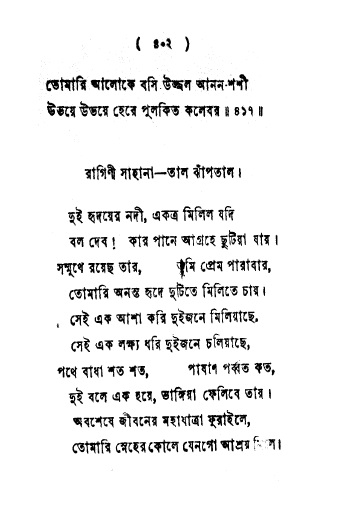 ( ৪০২ )
তোমারি আলোকে বসি উজ্জল আনন-শশী
উভয়ে উভয়ে হেরে পুলকিত কলেবর ॥ ৪১৭ ॥
রাগিণী সাহানা—তাল ঝাঁপতাল।
দুই হৃদয়ের নদী, একত্র মিলিল যদি
বল দেব! কার পানে আগ্রহে ছুটিয়া যায়।
সম্মুখে রয়েছ তার, তুমি প্রেম পারাবার,
তোমারি অনন্ত হৃদে দুটিতে মিলিতে চায়।
সেই এক আশা করি দুইজনে মিলিয়াছে,
সেই এক লক্ষ্য ধরি দুইজনে চলিয়াছে,
পথে বাধা শত শত, পাষাণ পর্ব্বত কত,
দুই বলে এক হয়ে, ভাঙ্গিয়া ফেলিবে তায়।
অবশেষে জীবনের মহাযাত্রা ফুরাইলে,
তোমারি স্নেহের কোলে যেনগো আশ্রয়